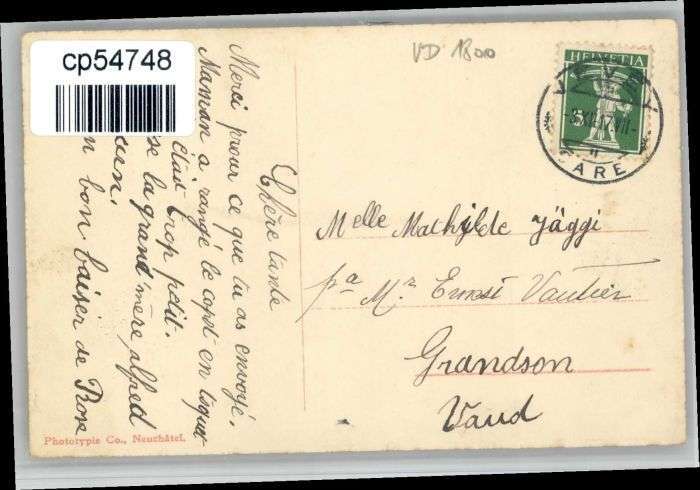 cp54748
VD 1800
HELVETIA
5
VEVEY
GARE
Chère tante
Merci pour ce que tu as envoyé.
Maman a rangé le capet en lisquet
était trop petit.
se la grand'mère, alfred
cun.
n bon baiser de Rose
Melle Mathilde Jäggi
pa Mr Ernest Vautier
Grandson
Vaud
Phototypie Co., Neuchâtel.